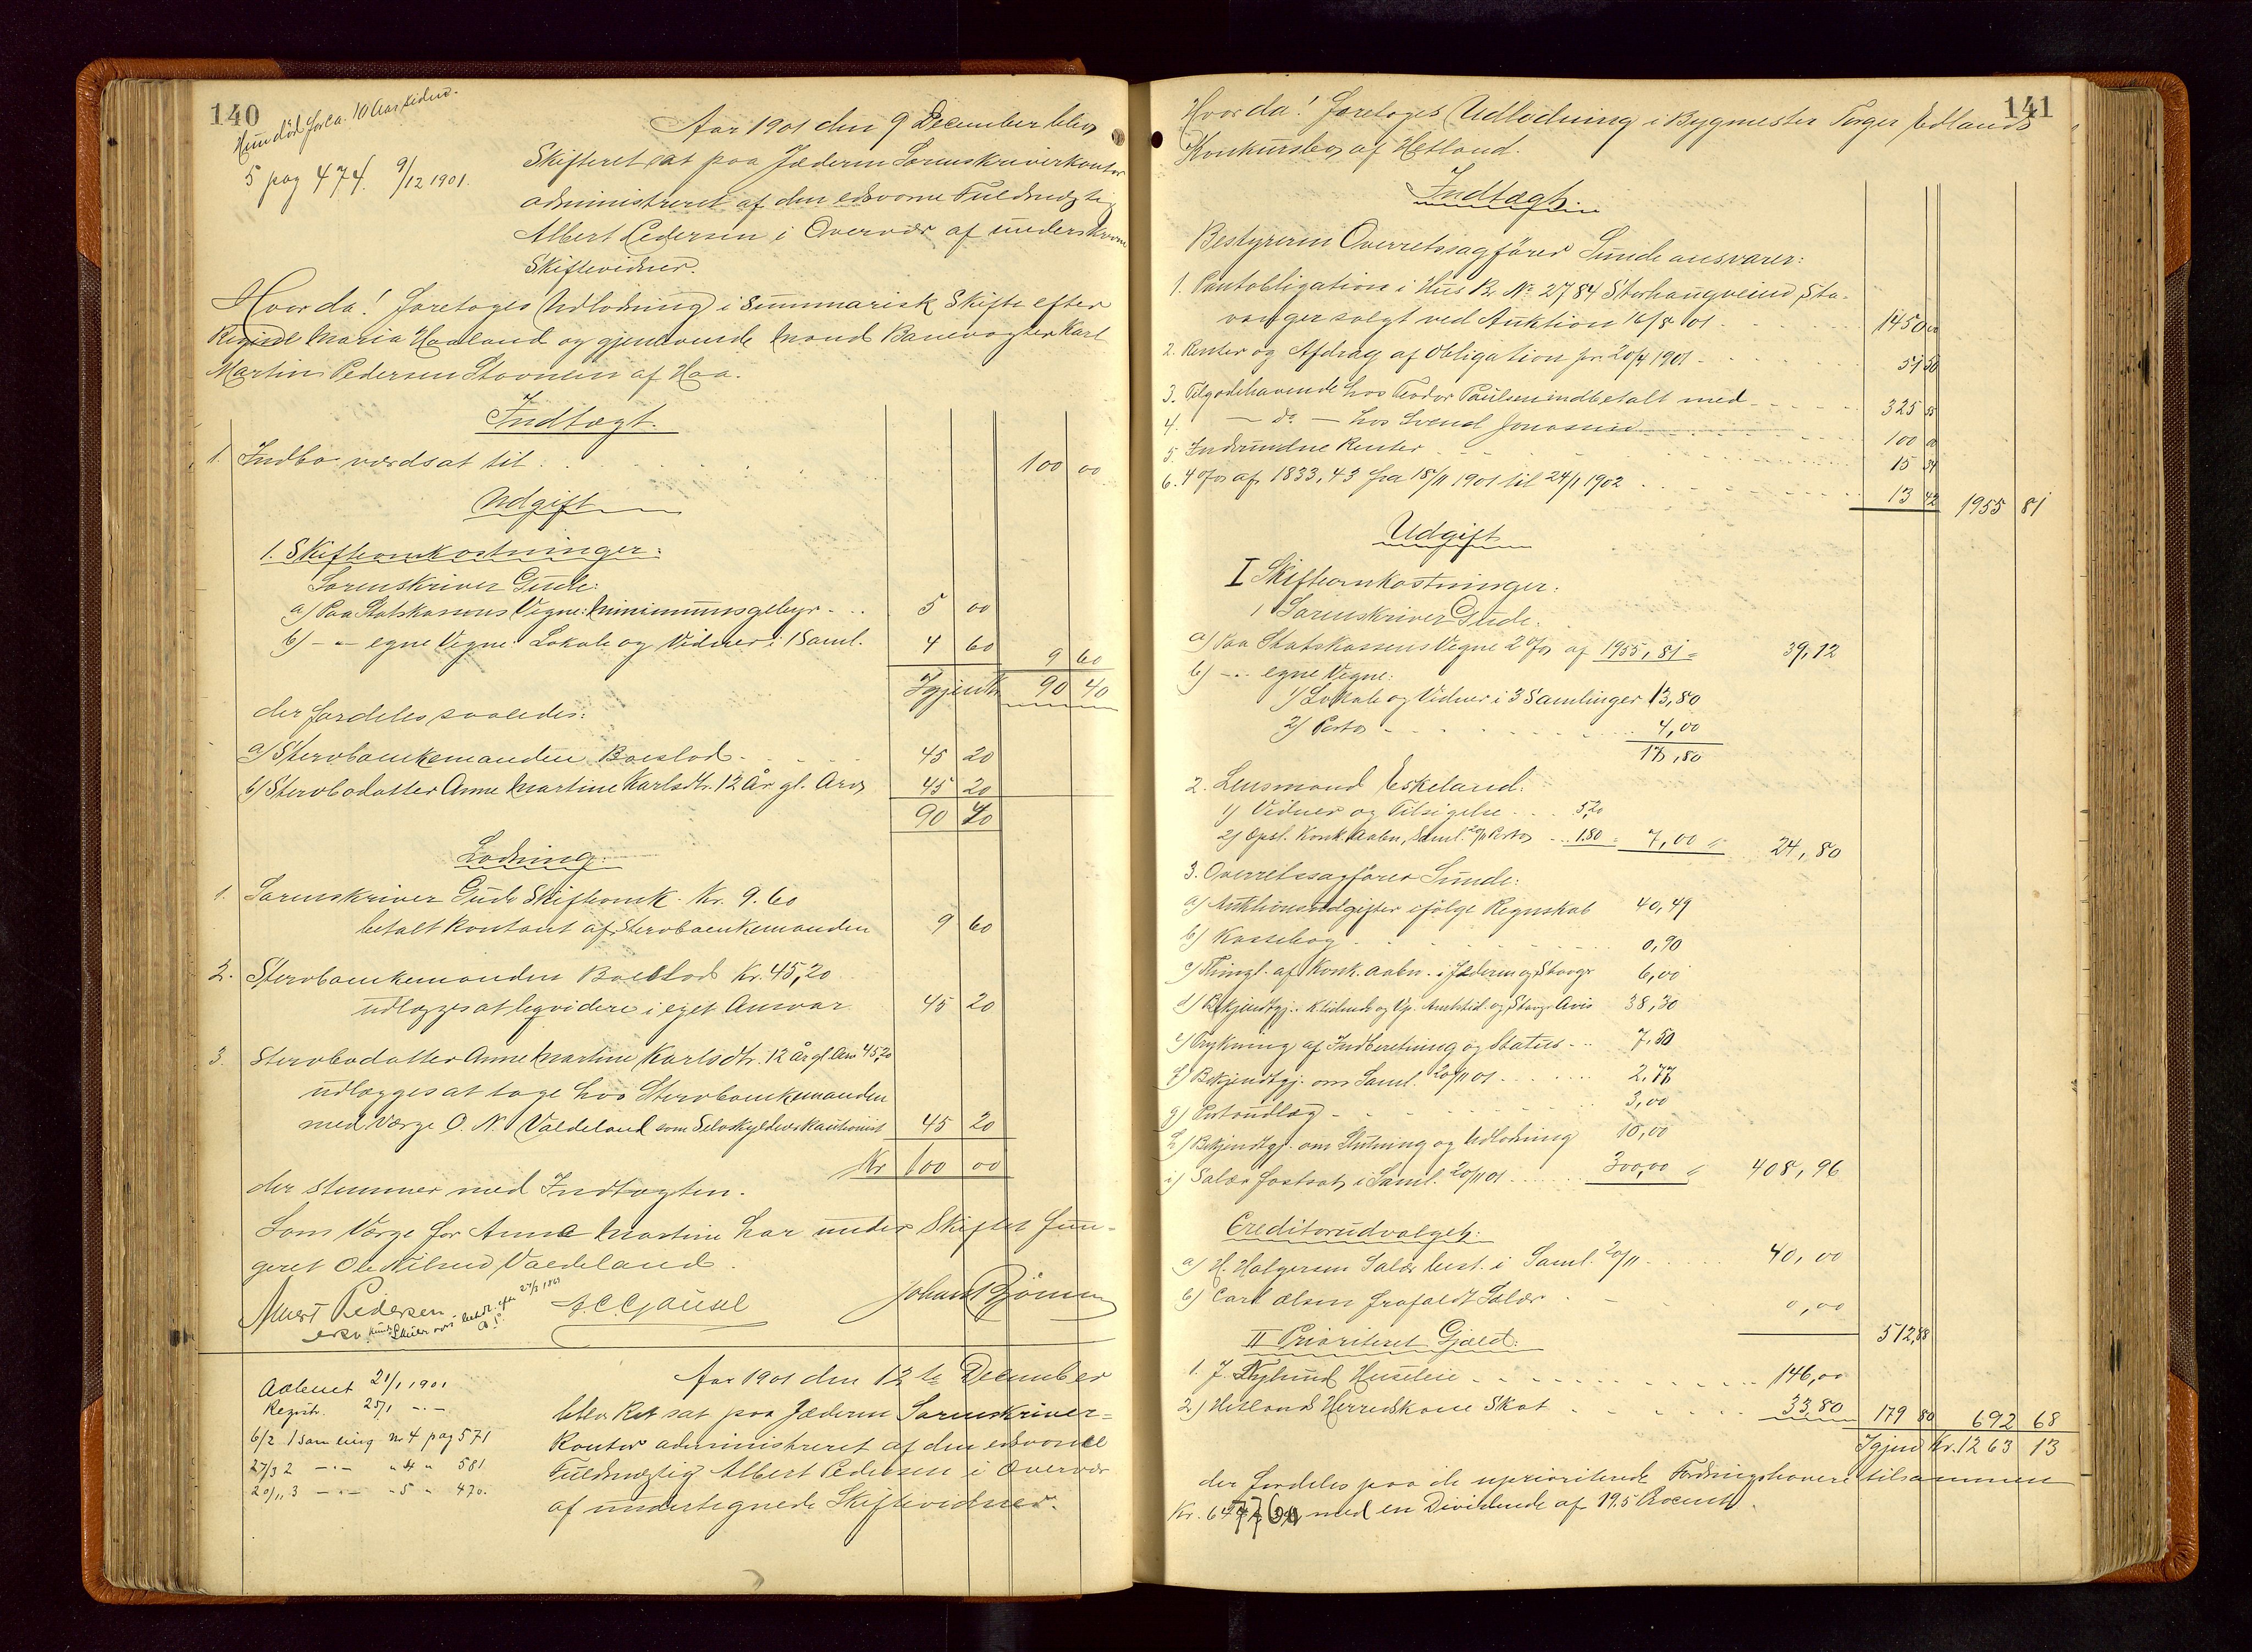 140
Hun død for ca. 10 Aar siden.
5 pag 474. 9/12 1901.
Aar 1901 den 9 December blev
Skifteret sat paa Jæderen Sorenskriverkontor
administreret af den edsvorne Fuldmægtig
Albert Pedersen i Overvær af underskrevne
Skiftevidner.
Hvorda! foretoges Udlodning i summarisk Skifte efter
Maria Haaland og gjenlevende Mand Banevogter Karl
Martin Pedersen Stovneen af Haa.
Indtægt.
1. Indbo værdsat til: 100 00
Udgift
1. Skifteomkostninger:
Sorenskriver Gude:
a) Paa Statskassens Vegne: Minimumsgebyr - .. 5 00
b) - " - egne Vegne: Lokale og Vidner i 1 Saml. 4 60 9 60
Igjen Kr 90 40
der fordeles saaledes:
a) Stervboenkemanden Boeslod - 45 20
b) Stervbodatter Anne Martine Karlsdtr. 12 År gl. Arv 45 20
90 40
Lodning:
1. Sorenskriver Gude Skifteomk. Kr. 9.60
betalt kontant af Stervboenkemanden 9 60
2. Stervboenkemanden Boeslod Kr. 45,20
udlægges at liqvidere i eget Ansvar 45 20
3. Stervbodatter Anne Martine Karlsdtr. 12 År gl. Arv 45,20
udlægges at tage hos Stervboenkemanden
med Værge O. N. Valdeland som Selvskyldnerkautionist 45 20
Kr 100 00
der stemmer med Indtægten.
Som Værge for Anne Martine har under Skiftet fun-
geret Ole Nilsen Valdeland.
Albert Pedersen A. C. Gausel Johan Bjørnsen
Aabnet 21/1 1901
Registr. 25/1 - " -
6/2 1 Samling No 4 pag 571
27/3 2 - " - " 4 " 581
20/11 3 - " - " 5 " 470.
Aar 1901 den 12te December
blev Ret sat paa Jæderen Sorenskriver-
kontor administreret af den edsvorne
Fuldmægtig Albert Pedersen i Overvær
af undertegnede Skiftevidner.
141
Hvorda! foretoges Udlodning i Bygmester Torger Edlands
Konkursbo af Hetland.
Indtægt.
Bestyreren Overretssagfører Sunde ansvarer:
1. Pantobligation i Hus Br. No 2784 Storhaugveien, Sta-
vanger solgt ved Auktion 16/8 01 1450 00
2. Renter og Afdrag af Obligation pr. 20/4 1901 - 51 50
3. Tilgodehavende hos Teodor Paulsen indbetalt med - 325 55
4. - do - hos Svend Jonassen 100 00
5. Indvundne Renter 15 34
6. 4 % af 1833,43 fra 18/11 1901 til 24/1 1902 13 42 1955 81
Udgift
I Skifteomkostninger:
1 Sorenskriver Gude:
a) Paa Statskassens Vegne 2 % af 1955,81 = 39,12
b) - " - egne Vegne:
1) Lokale og Vidner i 3 Samlinger 13,80
2) Porto 4,00
17,80
2. Lensmand Eskeland:
1) Vidner og Tilsigelse 5,20
2) Opsl. Konk. Aabn., Saml. 20/11 Porto 1.80 = 7,00 = 24,80
3. Overretssagfører Sunde:
a) Auktionsudgifter ifølge Regnskab 40,49
b) Kassebog 0,90
c) Thingl. af Konk. aabn. i Jæderen og Stavgr 6,00
d) Bekjendtgj. i K. tidende og Vp. Amtstid. og Stavgr Avis 38,30
e) Trykning af Indberetning og Status 7,50
f) Bekjendtgj. om Saml. 20/11 01 2,77
g) Portoudlæg - 3,00
h) Bekjendtgj. om Slutning og Udlodning 10,00
i) Salær fastsat i Saml. 20/11 01 300,00 = 408,96
Creditorudvalget:
a) H. Halgersen Salær best. i Saml. 20/11 40,00
b) Carl Olsen frafaldt Salær 0,00
512,88
II Prioriteret Gjæld:
1. J. Nylund Husleie 146,00
2) Hetlands Herredskasse Skat 33,80 179 80 692 68
Igjen Kr. 1263 13
der fordeles paa de uprioriterede Fordringshavere tilsammen
med en Dividende af 19,5 Procent.